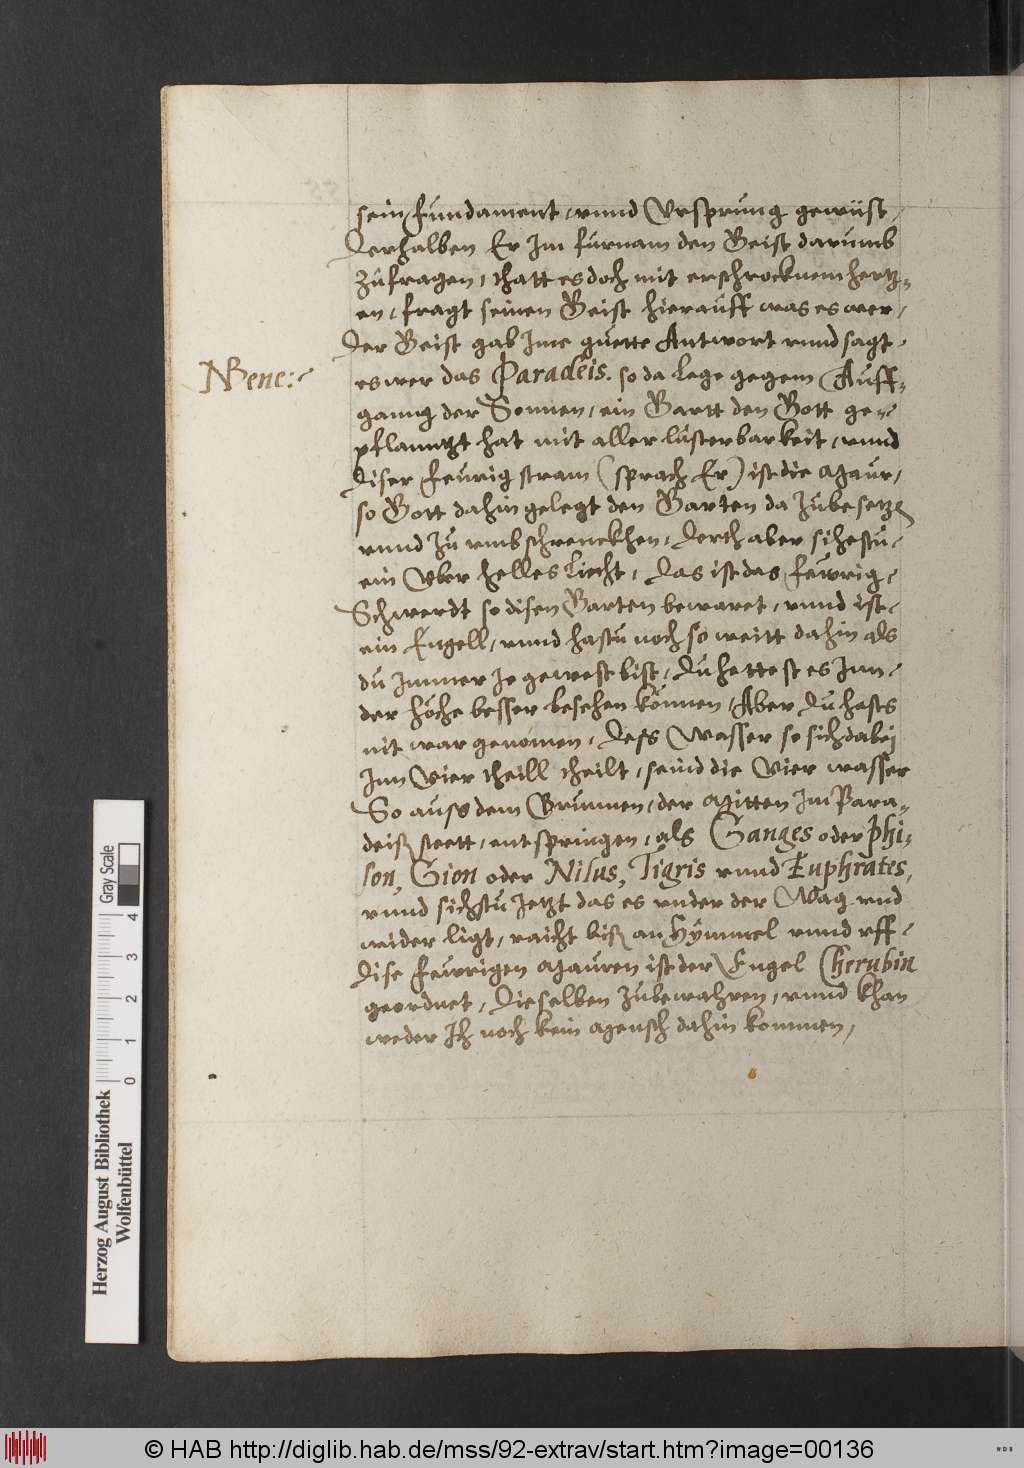 sein fundament, vnnd Vrsprung gewüst,
Derhalben Er Im fürnam den Geist darumb
Zufragen, thatt es doch mit erschrocknem hertz-
en, fragt seinen Geist hierauff was es wer,
Der Geist gab Ime guette Antwort vnnd sagt
NBene:
es wer das Paradeis. so da lege gegem Auff-
ganng der Sonnen, ein Gartt den Gott ge-
pflanntzt hat mit aller lüsterbarkeit, vnnd
Diser feurig stram (sprach Er) ist die Maur,
so Gott dahin gelegt den Garten da Zubesetzen
vnnd Zu vmbschrenckhen, Dorth aber sihestu
ein Vber helles Liecht, Das ist das fewrig
Schwerdt so disen Garten bewaret, vnnd ist
ein Engell, vnnd hastu noch so weitt dahin als
du Immer Je gewest bist, Du hettest es Inn
der höche besser besehen können, Aber Du hasts
nit war genomen, Dess Wasser so sich dabej
Inn Vier theill theilt, seind die Vier wasser
So auss dem Brunnen, der Mitten Im Para-
deiß steett, entspringen, als Ganges oder Phi-
son, Gion oder Nilus, Tigris vnnd Euphrates,
vnnd sichstu Jetzt das es vnder der Wag vnd
wider ligt, raicht biß an Hÿmmel vnnd vff
Dise fewrigen Mauren ist der Engel Cherubin
geordnet, Dieselben Zubewahren, vnnd khan
weder Ich noch kein Mensch dahin kommen,
Herzog August Bibliothek
Wolfenbüttel
Gray Scale
0 1 2 3 4
© HAB http://diglib.hab.de/mss/92-extrav/start.htm?image=00136
WDB